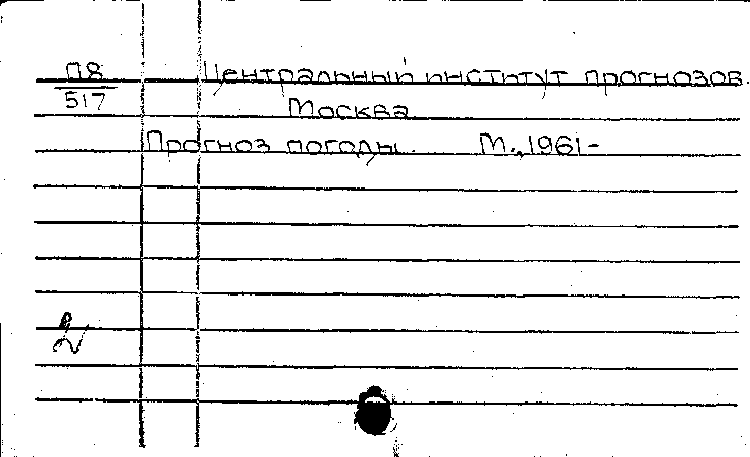 П8 Центральный институт прогнозов.
517 Москва
Прогноз погоды. М., 1961-